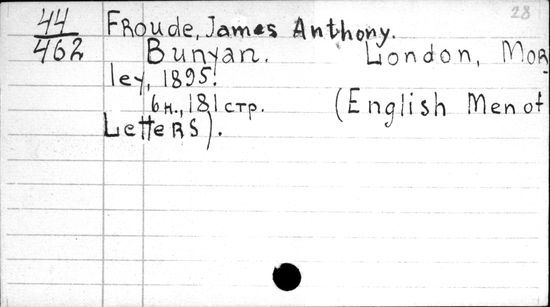 28
44
462
Froude, James Anthony.
Bunyan. London, Mor
ley, 1895.
6н., 181 стр. (English Men of
Letters).